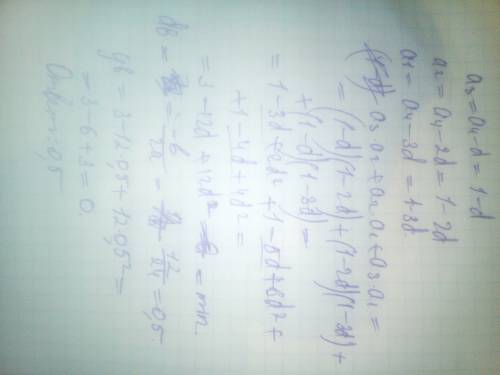 a₃ = a₄ - d = 1 - d
a₂ = a₄ - 2d = 1 - 2d
a₁ = a₄ - 3d = 1 - 3d.
a₃·a₂ + a₂·a₁ + a₃·a₁ =
= (1-d)(1-2d) + (1-2d)(1-3d) +
+ (1-d)(1-3d) =
= 1 - 3d + 2d² + 1 - 5d + 6d² +
+ 1 - 4d + 4d² =
= 3 - 12d + 12d² = min.
dв = = -b/2a = 12/24 = 0,5.
yв = 3 - 12·0,5 + 12·0,5² =
= 3 - 6 + 3 = 0.
Ответ: 0,5